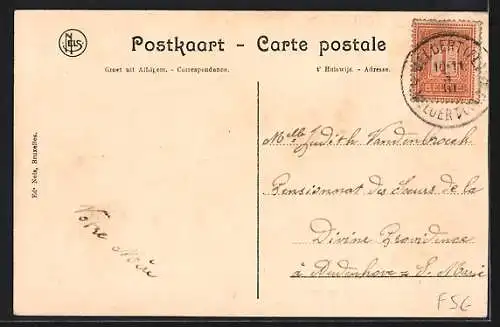 NELS
Postkaart - Carte postale
Groet uit Alhagem. - Correspondance.
t' Huiswijs. - Adresse.
Edr Nels, Bruxelles.
Melle Judith Vandenbroeck
Pensionnat des Sœurs de la
Divine Providence
à Audenhove = S. Marie
Votre Mère
FSE